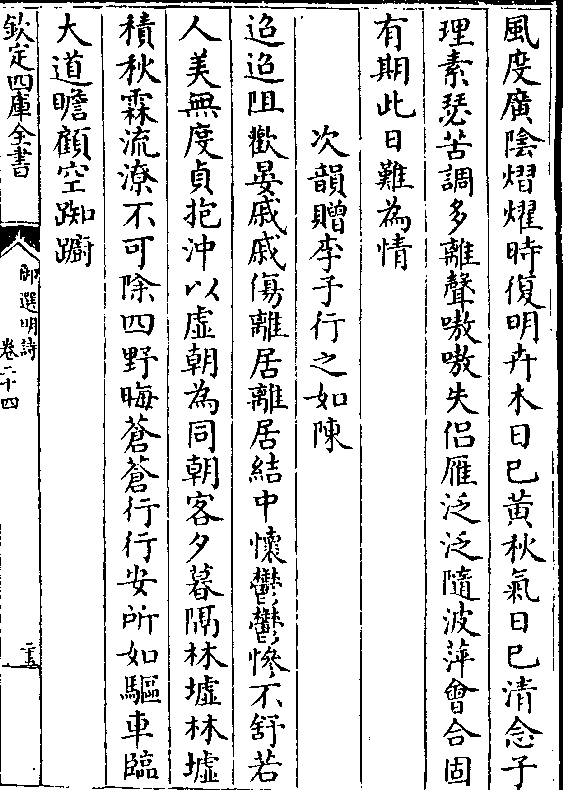 風度廣陰熠燿時復明卉木日已黃秋氣日已清念子
理素瑟苦調多離聲嗷嗷失侣雁泛泛隨波萍會合固
有期此日難為情
次韻贈李子行之如陳
迢迢阻歡晏戚戚傷離居離居結中懷鬱鬱慘不舒若
人美無度貞抱沖以虛朝為同朝客夕暮隔林墟林墟
積秋霖流潦不可除四野晦蒼蒼行行安所如驅車臨
大道瞻顧空踟躕
欽定四庫全書
御選明詩
卷二十四
二十五